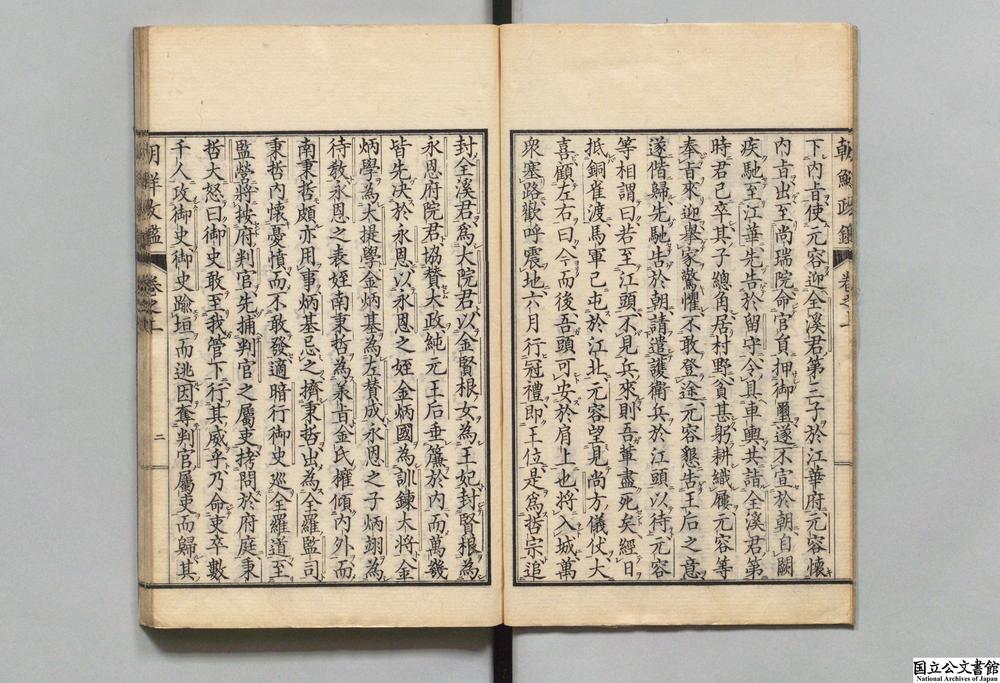 朝鮮政鑑 卷之上
下內旨使元容迎全溪君第三子於江華府元容懷
內旨出至尚瑞院命官負押御璽遂不宣於朝自闕
疾馳至江華先告於留守令具車輿共詣全溪君第
時君已卒其子總角居村野貧甚躬耕織屨元容等
奏旨來迎擧家驚懼不敢登途元容懇告王后之意
遂偕歸先馳告於朝請遣護衛兵於江頭以待元容
等相謂曰若至江頭不見兵來則吾輩盡死矣經日
抵銅雀渡馬軍已屯於江北元容望見尚方儀仗大
喜顧左右曰今而後吾頭可安於肩上也將入城萬
衆塞路歡呼震地六月行冠禮即王位是爲哲宗追
封全溪君爲大院君以金賢根女為王妃封賢根為
永恩府院君協賛大政純元王后垂簾於內而萬幾
皆先决於永恩以永恩之姪金炳國為訓鍊大將金
炳學為大提學金炳基為左賛成永恩之子炳翊為
待敎永恩之表姪南秉哲為承旨金氏權傾內外而
南秉哲頗亦用事炳基忌之擠秉哲出為全羅監司
秉哲內懷憂憤而不敢發適暗行御史巡全羅道至
監營將按府判官先捕判官之屬吏拷問於府庭秉
哲大怒曰御史敢至我管下行其威乎乃命吏卒數
千人攻御史御史踰垣而逃因奪判官屬吏而歸其
二
国立公文書館
National Archives of Japan